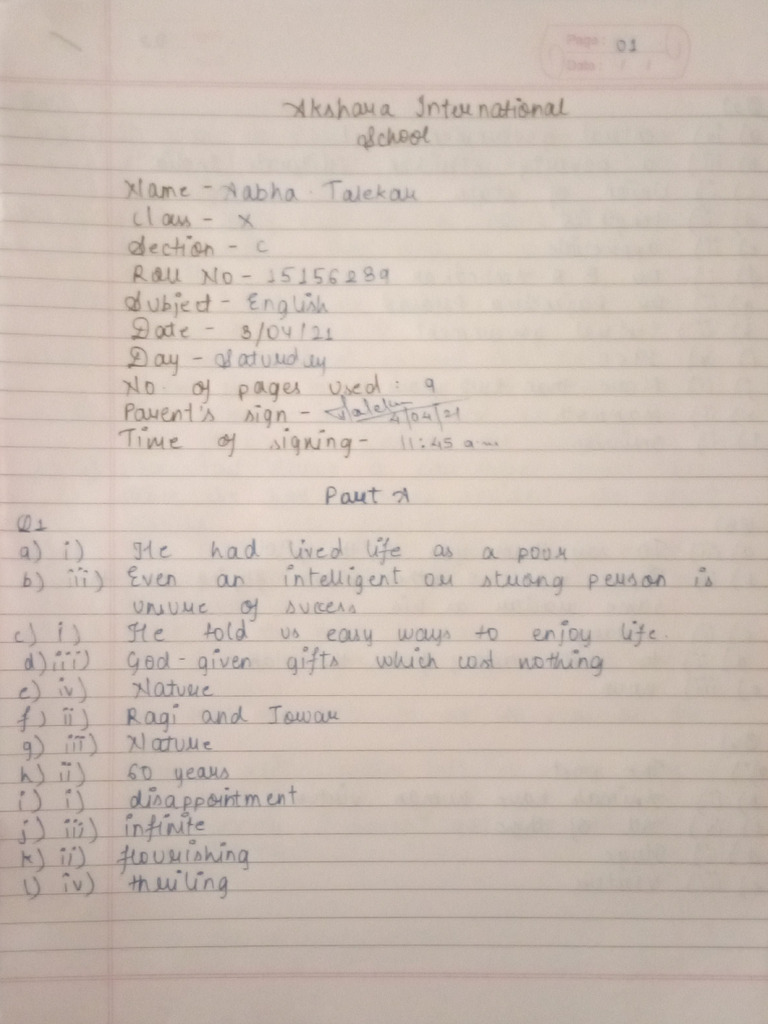 Page: 01
Date: / /
Akshara International
School
Name - Aabha Talekar
Class - X
Section - C
Roll No - 15156289
Subject - English
Date - 3/04/21
Day - Saturday
No. of pages used: 9
Parent's sign - Talekar 4/04/21
Time of signing - 11:45 a.m
Part A
Q1
a) i) He had lived life as a poor
b) iii) Even an intelligent or strong person is
unsure of success
c) i) He told us easy ways to enjoy life.
d) iii) God-given gifts which cost nothing
e) iv) Nature
f) ii) Ragi and Jowar
g) iii) Nature
h) ii) 60 years
i) i) disappointment
j) iii) infinite
k) ii) flourishing
l) iv) thriling